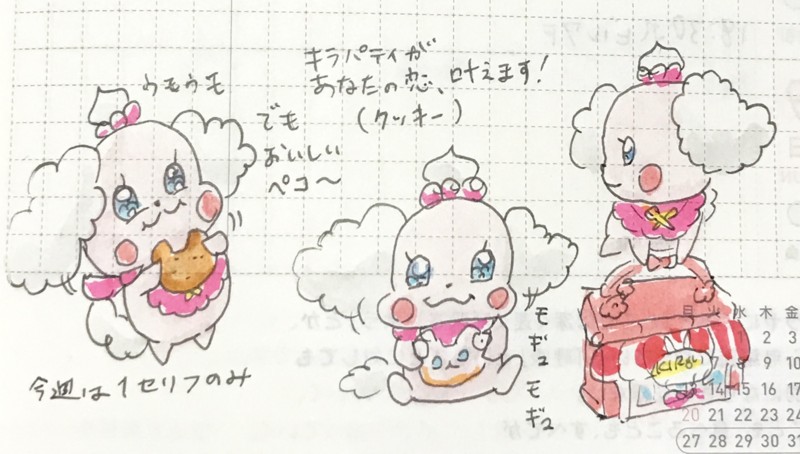 ウモウモ
でも
おいしい
ペコ〜
キラパティが
あなたの恋、叶えます!
(クッキー)
今週は1セリフのみ
モギュ
モギュ
月 火 水 木 金
2 3
7 8 9 10
14 15 16 17
20 21 22 23 24
27 28 29 30 31